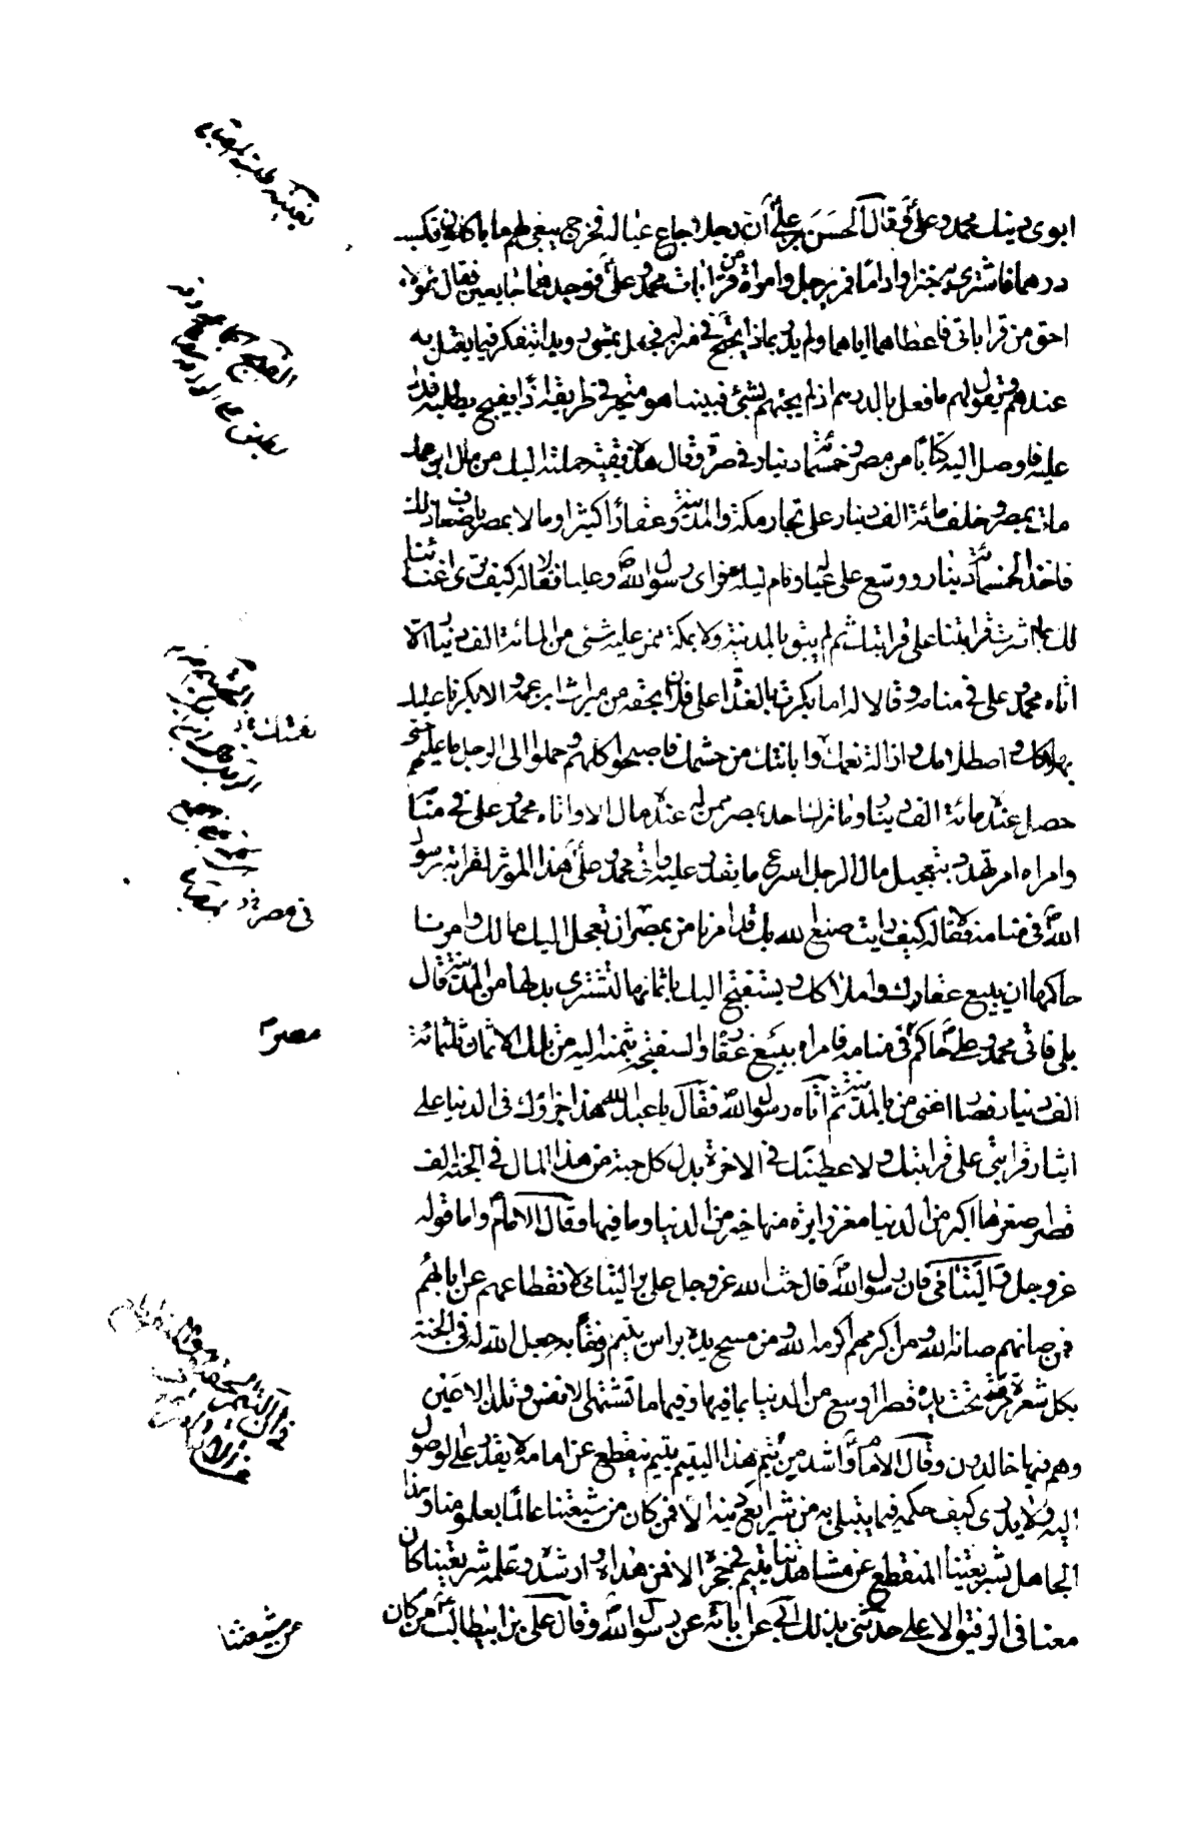 ابوى دينك محمد وعلى وقال الحسن بن على ان رجلا جاع عياله فخرج يبغى لهم ما ياكلون فكسب
درهما فاشترى به خبزا واداما فمر برجل وامراة من قرابات محمد وعلى فوجدهما جايعين فقال هؤلاء
احق من قراباتى فاعطاهما اياهما ولم يدر بماذا يحتج فى منزله فجعل يمشى رويدا يتفكر فيما يعتل به
عندهم ويقول لهم ما فعل بالدرهم اذ لم يجئهم بشئ فبينما هو متحير فى طريقه اذا بفيج يطلبه فدل
عليه فاوصل اليه كتابا من مصر وخمسمائة دينار فى صرة وقال هذه بقية حملته اليك من مال ابن عمك
مات بمصر وخلف مائة الف دينار على تجار مكة والمدينة وعقارا كثيرا ومالا بمصر باضعاف ذلك
فاخذ الخمسمائة دينار ووسع على عياله ونام ليلته فراى رسول الله وعليا فقالا له كيف ترى اغنائنا
لك لما اثرت قرابتنا على قرابتك ثم لم يبق بالمدينة ولا بمكة ممن عليه شئ من المائة الف دينار الا
اتاه محمد وعلى فى منامه وقالا له اما بكرت بالغداة على فلان بحقه من ميراث ابن عمه والا بكرنا عليك
بهلاكك واصطلامك وازالة نعمك وابانتك من حشمك فاصبحوا كلهم وحملوا الى الرجل ما عليهم حتى
حصل عنده مائة الف دينار وما ترك احد بمصر ممن له عنده مال الا واتاه محمد وعلى فى منامه
وامراه امر تهدد بتعجيل مال الرجل اسرع ما يقدر عليه واتى محمد وعلى هذا الموثر لقرابة رسول
الله فى منامه فقالا له كيف رايت صنع الله لك قد امرنا من بمصر ان تعجل اليك مالك وامرنا
حاكمها ان يبيع عقارك واملاكك ويستفتج اليك باثمانها لتشترى بدلها من المدينة قال
بلى فاتى محمد وعلى حاكم فى منامه فامراه ببيع عقاره والسفتجة بثمنه اليه من تلك الاثمان ثلثمائة
الف دينار فصار اغنى من بالمدينة ثم اتاه رسول الله فقال يا عبد الله هذا جزاؤك فى الدنيا على
ايثار قرابتى على قرابتك ولاعطينك فى الاخرة بدل كل حبة من هذا المال فى الجنة الف
قصر اصغرها اكبر من الدنيا مغرز ابرة منها خير من الدنيا وما فيها وقال الامام واما قوله
عز وجل واليتامى فان رسول الله قال حث الله عز وجل على بر اليتامى لانقطاعهم عن ابائهم
فمن صانهم صانه الله ومن اكرمهم اكرمه الله ومن مسح يده براس يتيم رفقا به جعل الله له فى الجنة
بكل شعرة مرت تحت يده قصرا اوسع من الدنيا بما فيها وفيها ما تشتهى الانفس وتلذ الاعين
وهم فيها خالدون وقال الامام واشد من يتم هذا اليتيم يتيم ينقطع عن امامه لا يقدر على الوصول
اليه ولا يدرى كيف حكمه فيما يبتلى به من شرايع دينه الا فمن كان من شيعتنا عالما بعلومنا وهذا
الجاهل بشريعتنا المنقطع عن مشاهدتنا يتيم فى حجره الا فمن هداه وارشده وعلمه شريعتنا كان
معنا فى الرفيق الاعلى حدثنى بذلك ابى عن ابائه عن رسول الله وقال على بن ابيطالب من كان
مصر
من شيعتنا